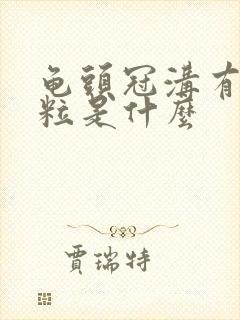 龟頭冠溝有
粒是什麼
賈瑞特